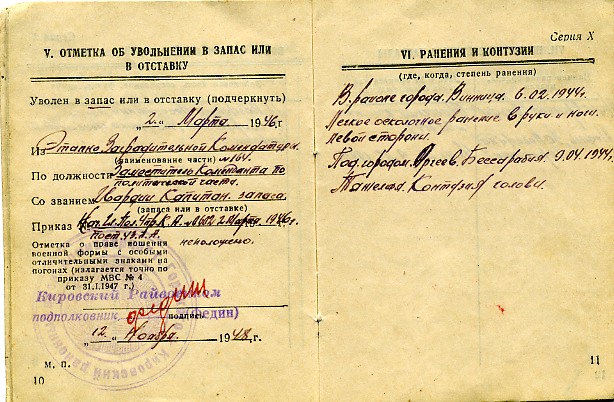 V. ОТМЕТКА ОБ УВОЛЬНЕНИИ В ЗАПАС ИЛИ
В ОТСТАВКУ
Уволен в запас или в отставку (подчеркнуть)
„2“ Марта 1946 г
Из Этапно Заградительной Комендатуры
(наименование части) № 164.
По должности Заместитель Коменданта по
политической части.
Со званием Гвардии Капитан запаса
(запаса или в отставке)
Приказ Гл. Пол. Упр. К. А. № 0602 2 Марта 1946 г.
Отметка о праве ношения
военной формы с особыми
отличительными знаками на
погонах (излагается точно по
приказу МВС № 4
от 31.I.1947 г.)
неположено.
Кировский Райвоенком
подполковник
(Федин)
подпись
„12“ Ноября 1948 г.
М. П.
10
Серия X
VI. РАНЕНИЯ И КОНТУЗИИ
(где, когда, степень ранения)
В районе города Винница 6.02.1944 г.
Легкое осколочное ранение в руки и ноги
левой стороны.
Под городом Оргеев. Бессарабия 9.04.1944 г.
Тяжелая Контузия головы.
11